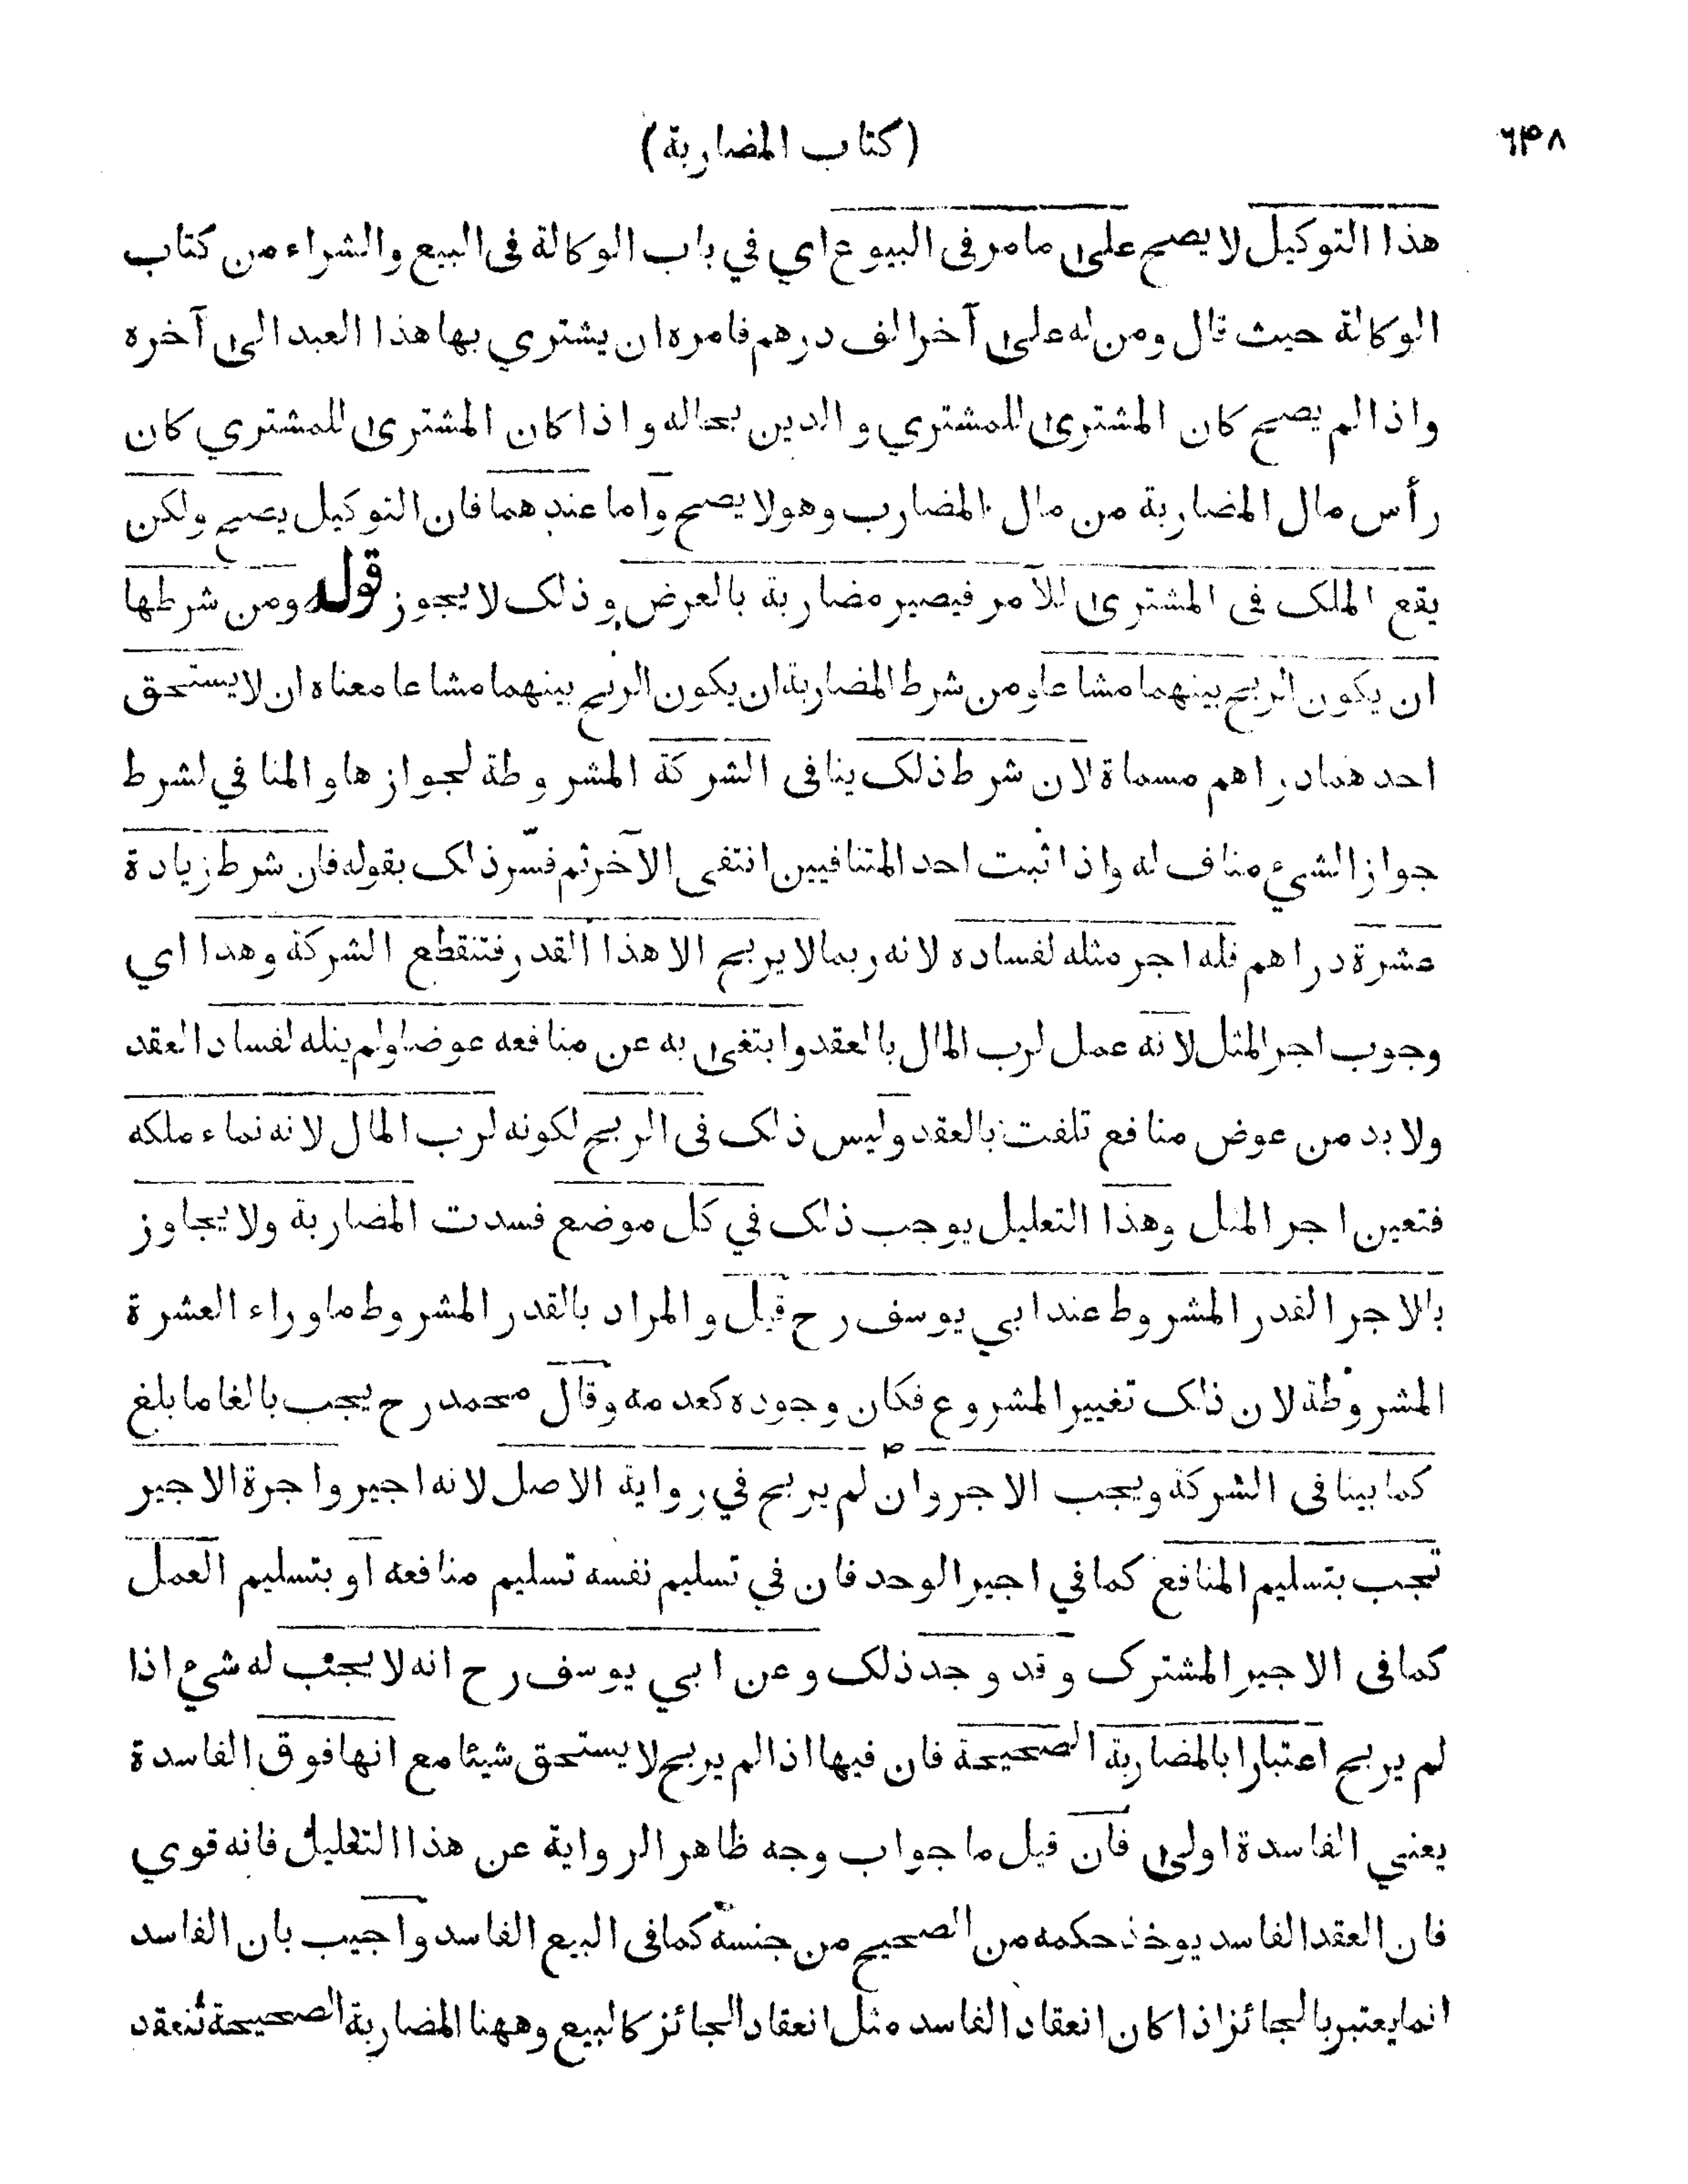 (كتاب المضاربة)
٦٣٨
هذا التوكيل لا يصح على ما مر في البيوع اي في باب الوكالة في البيع والشراء من كتاب
الوكالة حيث قال ومن له على آخر الف درهم فامره ان يشتري بها هذا العبد الى آخره
واذا لم يصح كان المشترى للمشتري والدين بحاله واذا كان المشترى للمشتري كان
رأس مال المضاربة من مال المضارب وهو لا يصح واما عندهما فان التوكيل يصح ولكن
يقع الملك في المشترى للآمر فيصير مضاربة بالعرض وذلك لا يجوز قوله ومن شرطها
ان يكون الربح بينهما مشاعا ومن شرط المضاربة ان يكون الربح بينهما مشاعا معناه ان لا يستحق
احدهما دراهم مسماة لان شرط ذلك ينافي الشركة المشروطة لجوازها والمنافي لشرط
جواز الشيء مناف له واذا ثبت احد المتنافيين انتفى الآخر ثم فسّر ذلك بقوله فان شرط زيادة
عشرة دراهم فله اجر مثله لفساده لانه ربما لا يربح الا هذا القدر فتنقطع الشركة وهذا اي
وجوب اجر المثل لانه عمل لرب المال بالعقد وابتغى به عن منافعه عوضا ولم ينله لفساد العقد
ولا بد من عوض منافع تلفت بالعقد وليس ذلك في الربح لكونه لرب المال لانه نماء ملكه
فتعين اجر المثل وهذا التعليل يوجب ذلك في كل موضع فسدت المضاربة ولا يجاوز
بالاجر القدر المشروط عند ابي يوسف رح قيل والمراد بالقدر المشروط ما وراء العشرة
المشروطة لان ذلك تغيير المشروع فكان وجوده كعدمه وقال محمد رح يجب بالغا ما بلغ
كما بينا في الشركة ويجب الاجر وان لم يربح في رواية الاصل لانه اجير واجرة الاجير
تجب بتسليم المنافع كما في اجير الوحد فان في تسليم نفسه تسليم منافعه او بتسليم العمل
كما في الاجير المشترك وقد وجد ذلك وعن ابي يوسف رح انه لا يجب له شيء اذا
لم يربح اعتبارا بالمضاربة الصحيحة فان فيها اذا لم يربح لا يستحق شيئا مع انها فوق الفاسدة
يعني الفاسدة اولى فان قيل ما جواب وجه ظاهر الرواية عن هذا التعليل فانه قوي
فان العقد الفاسد يوخذ حكمه من الصحيح من جنسه كما في البيع الفاسد واجيب بان الفاسد
انما يعتبر بالجائز اذا كان انعقاد الفاسد مثل انعقاد الجائز كالبيع وههنا المضاربة الصحيحة تنعقد